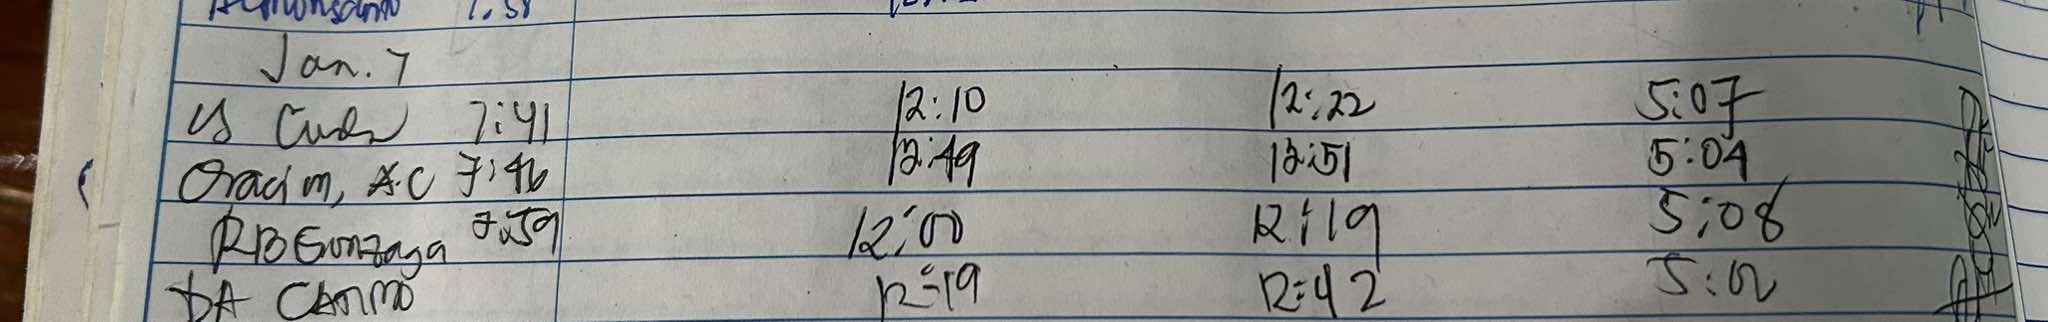 7:58
Jan. 7
7:41 12:10 12:22 5:07
Oracion, A.C 7:46 12:49 12:51 5:04
RB Gonzaga 7:59 12:00 12:19 5:08
DA 12:19 12:42 5:02